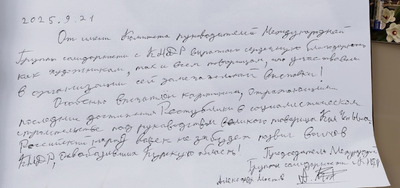 2025.9.21
От имени Комитета руководителей Международной
Группы солидарности с КНДР выражаю сердечную благодарность
как художникам, так и всем товарищам, кто участвовал
в организации сей замечательной выставки!
Особенно впечатлили картины, отражающие
последние достижения Республики в социалистическом
строительстве под руководством великого товарища Ким Чен Ына.
Российский народ вовек не забудет подвиг воинов
КНДР, освобождавших Курскую область!
Председатель
Группы солидарности с КНДР
Александр